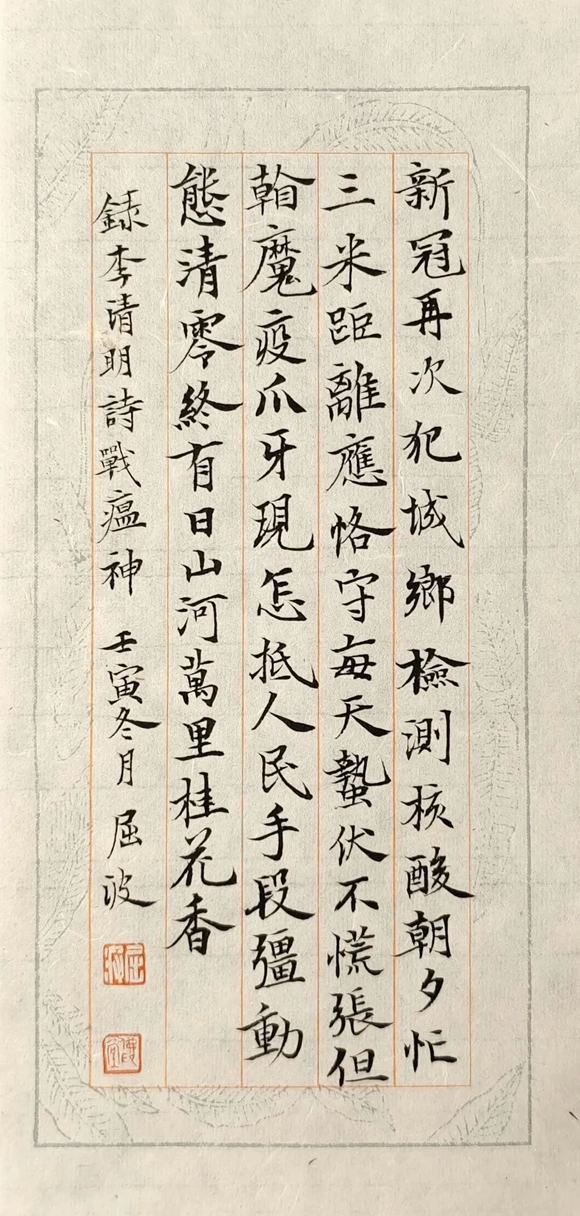 新冠再次犯城鄉檢測核酸朝夕忙
三米距離應恪守每天蟄伏不慌張但
翰魔疫爪牙現怎抵人民手段彊動
態清零終有日山河萬里桂花香
錄李清明詩戰瘟神 壬寅冬月 屈波